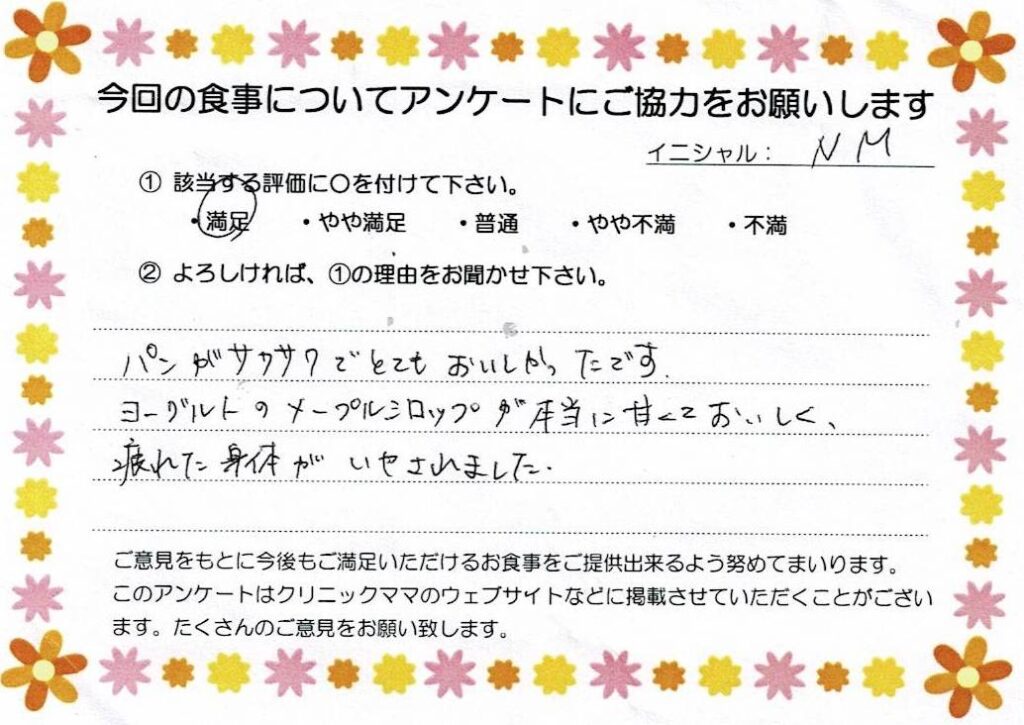 今回の食事についてアンケートにご協力をお願いします
イニシャル： NM
① 該当する評価に〇を付けて下さい。
・満足 ・やや満足 ・普通 ・やや不満 ・不満
② よろしければ、①の理由をお聞かせ下さい。
パンがサクサクでとてもおいしかったです.
ヨーグルトのメープルシロップが本当に甘くておいしく、
疲れた身体がいやされました.
ご意見をもとに今後もご満足いただけるお食事をご提供出来るよう努めてまいります。
このアンケートはクリニックママのウェブサイトなどに掲載させていただくことがござい
ます。たくさんのご意見をお願い致します。